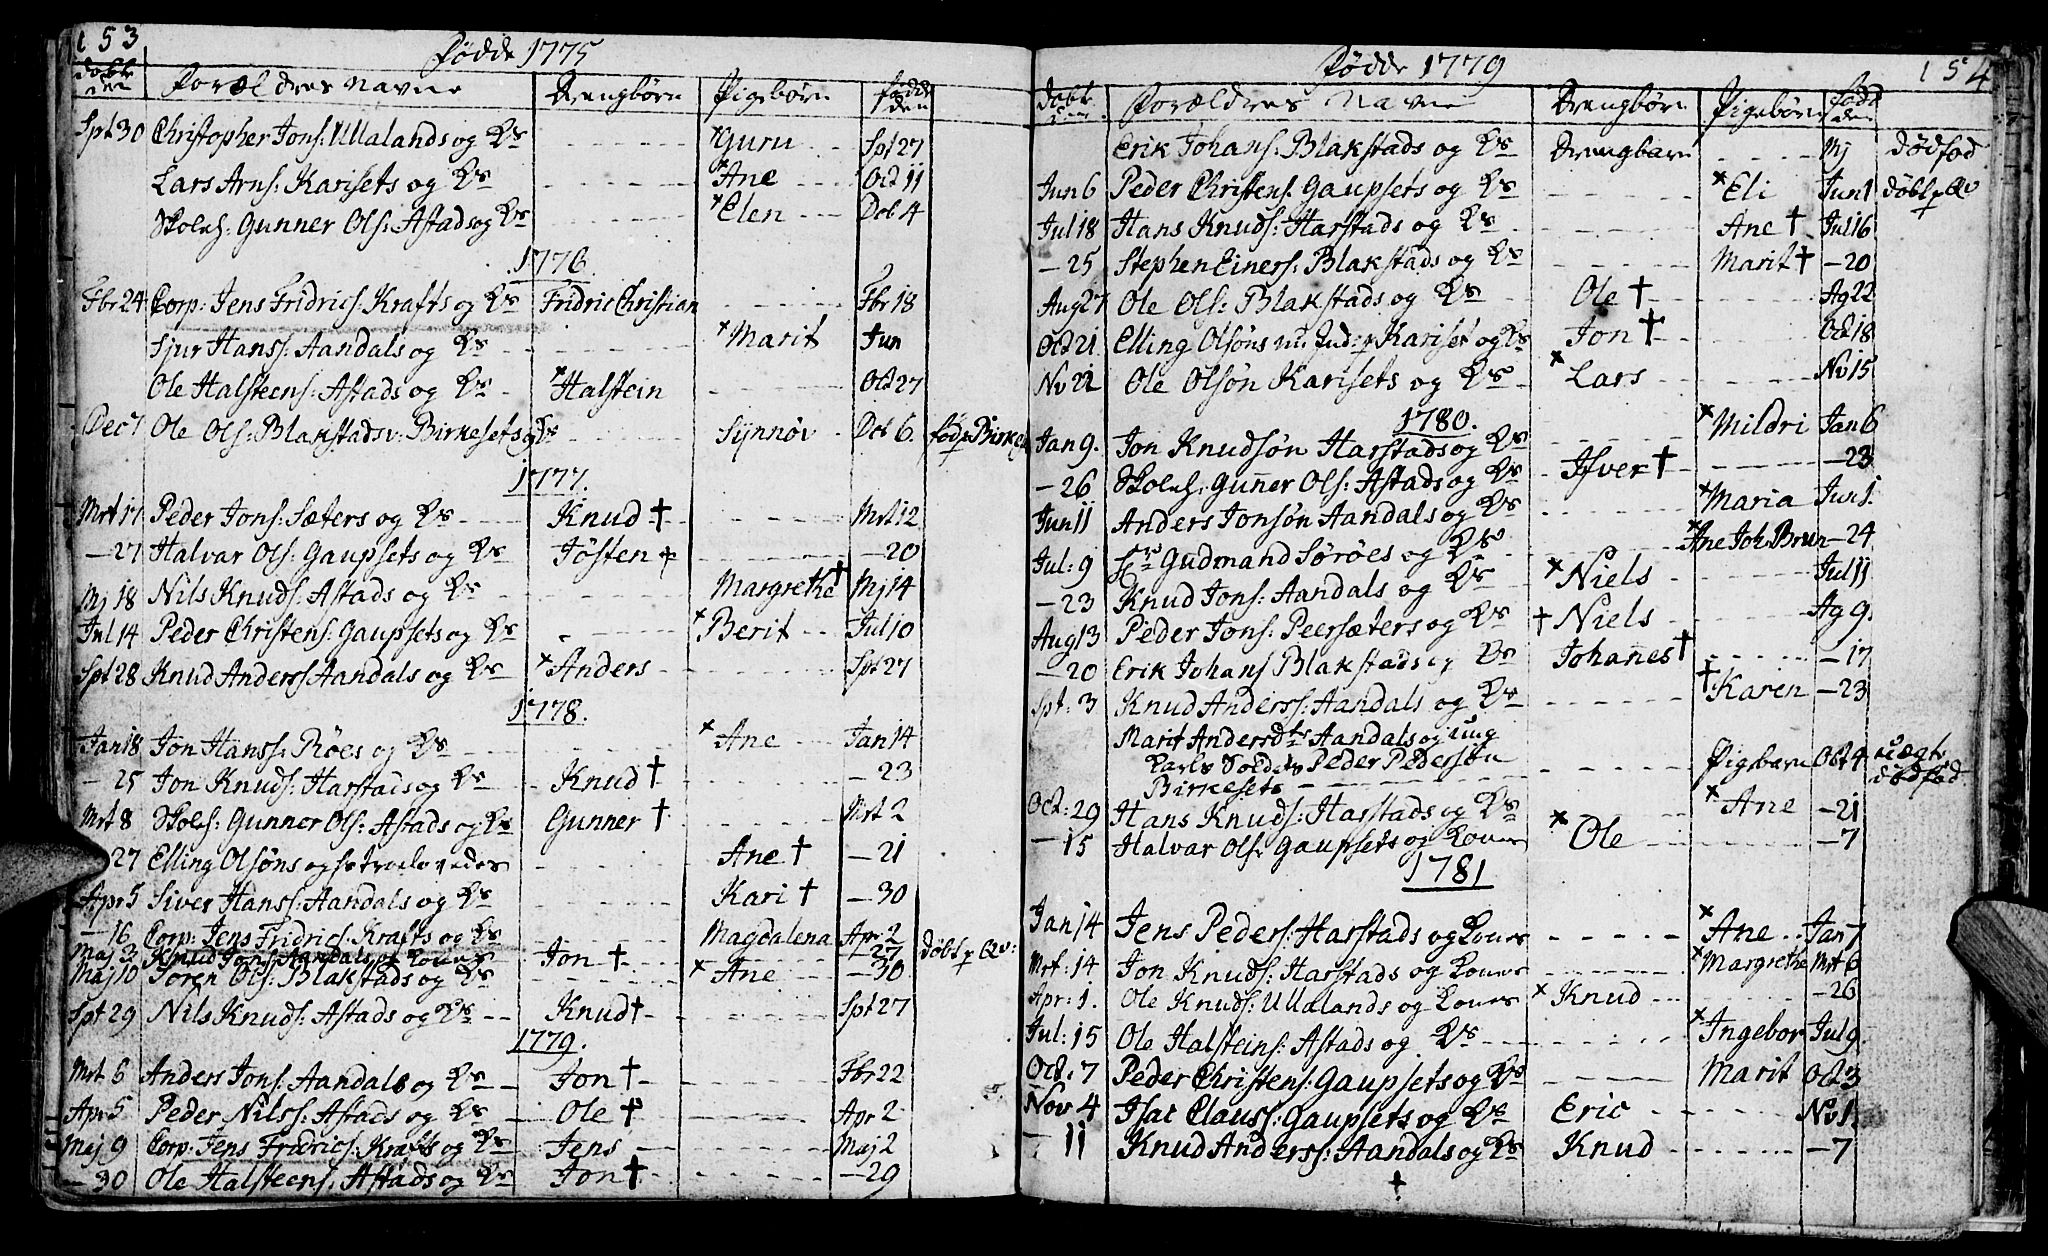 153
Fødde 1775
døbte den Forældres Navne Drengbørn Pigebørn fødde den
Spt 30 Christopher Jons: Ullalands og Kvs Guru Spt 27
Lars Arns: Karisets og Kvs Ane Oct 11
Skoleh: Gunner Ols: Astads og Kvs Elen Dcb 4
1776.
Fbr 24 Corp: Jens Fridrics: Krafts og Kvs Fridric Christian Fbr 18
Sjur Hanss: Aandals og Kvs Marit Jun
Ole Halsteens: Astads og Kvs Halstein Oct 27
Dec 7 Ole Ols: Blakstads v: Birkesets og Kvs Synnøv Dcb 6. fød p Birkes
1777.
Mrt 17 Peder Jons: Sæters og Kvs Knud † Mrt 12
—27 Halvar Ols: Gaupsets og Kvs Jøsten † —20
Mj 18 Nils Knuds: Astads og Kvs Margrethe † Mj 14
Jul 14 Peder Christens: Gaupsets og Kvs Berit Jul 10
Spt 28 Knud Anderss Aandals og Kvs Anders Spt 27
1778.
Jan 18 Jon Hanss: Røes og Kvs Ane Jan 14
— 25 Jon Knuds: Harstads og Kvs Knud † — 23
Mrt 8 Skoleh: Gunner Ols: Astads og Kvs Gunner † Mrt 2
27 Elling Olsøns og fætrolovedes Ane † — 21
Apr 5 Siver Hanss: Aandals og Kvs Kari † — 30
—16 Corp: Jens Fridrics: Krafts og Kvs Magdalena Apr 2
Maj 3 Knud Jons: Aandals og Kones Jon † —27 døbt p Qv:
Maj 10 Søren Ols: Blakstads og Kvs Ane — 30
Spt 29 Nils Knuds: Astads og Kvs Knud † Spt 27
1779.
Mrt 6 Anders Jons: Aandals og Kvs Jon † Fbr 22
Apr 5 Peder Nilss: Astads og Kvs Ole † Apr 2
Maj 9 Corp: Jens Fridrics: Krafts og Kvs Jens Maj 2
— 30 Ole Halsteens: Astads og Kvs Jon † —29
154
Fødde 1779
døbte den Forældres Navne Drengbørn Pigebørn Fødd den
Erik Johans: Blakstads og Kvs Drengbarn Mj dødfød
Jun 6 Peder Christens: Gaupsets og Kvs Eli Jun 1 døbt p Qv
Jul 18 Hans Knuds: Harstads og Kvs Ane † Jul 16
— 25 Stephen Einers: Blakstads og Kvs Marit † —20
Aug 27 Ole Ols: Blakstads og Kvs Ole † Ag 22
Oct 21 Elling Olsøns nu Ind: p Kariset og Kvs Jon † Oct 18
Nv 21 Ole Olsøn Karisets og Kvs Lars Nv 15
1780.
Jan 9. Jon Knudsøn Harstads og Kvs Mildri Jan 6
— 26 Skoleh: Gunner Ols: Astads og Kvs Ifver † —23
Jun 11 Anders Jonsøn Aandals og Kvs Maria Jun 1.
Jul: 9 Gudmand Sørøes og Kvs Ane Joh. Brun —24
— 23 Knud Jons: Aandals og Kvs Niels Jul 11
Aug 13 Peder Jons: Peersæters og Kvs † Niels Ag 9.
— 20 Erik Johans Blakstads og Kvs Johanes † — 17
Spt: 3 Knud Anderss: Aandals og Kvs † Karen — 23
Marit Andersdtr Aandals og ung
Karls Soldets Peder Pedersøn Pigebarn Oct 4 uægte dødfød
Birkesets
Oct: 29 Hans Knuds: Harstads og Kvs Ane —21
— 15 Halvar Ols: Gaupsets og Kones Ole — 7
1781
Jan 14 Jens Peders: Harstads og Kones Ane Jan 7
Mrt: 14 Jon Knuds: Harstads og Kones Margrethe Mrt 6
Apr: 1. Ole Knuds: Ullalands og Kones Knud —26
Jul: 15 Ole Halsteins: Astads og Kvs Ingebor Jul 9.
Oct: 7 Peder Christens: Gaupsets og Kvs Marit Oct 3
Nov 4 Isac Clauss: Gaupsets og Kvs Eric Nv 1.
— 11 Knud Anderss: Aandals og Kvs Knud — 7
†